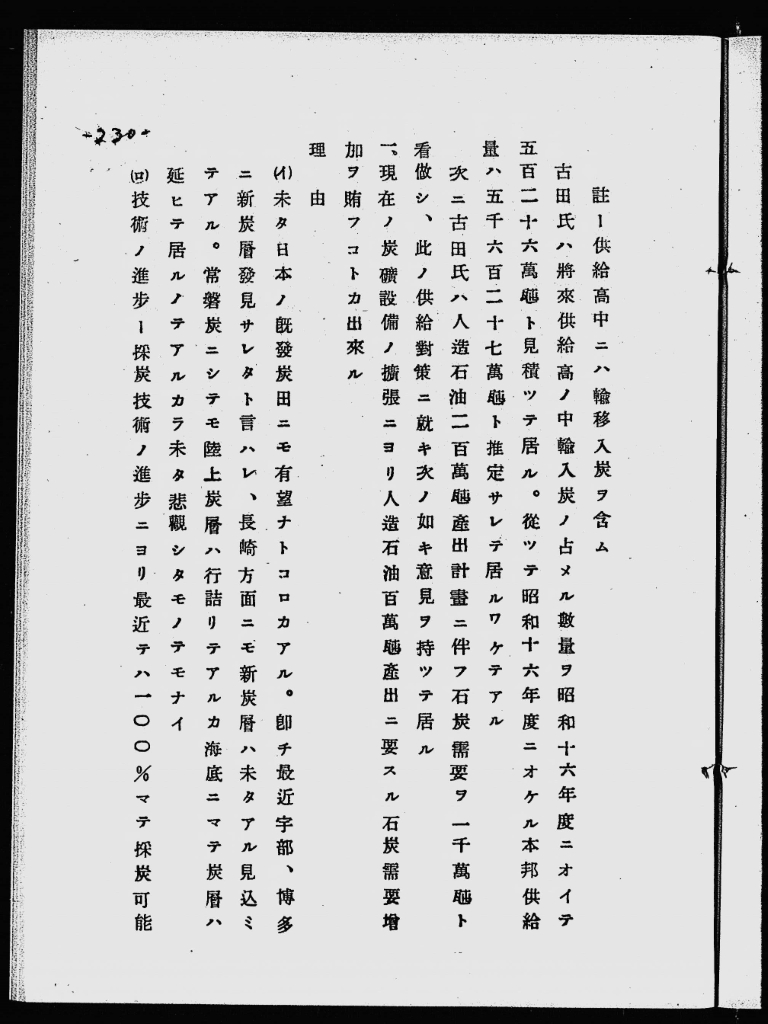 -230-
註ー供給高中ニハ輸移入炭ヲ含ム
古田氏ハ將來供給高ノ中輸入炭ノ占メル數量ヲ昭和十六年度ニオイテ
五百二十六萬瓲ト見積ツテ居ル。從ツテ昭和十六年度ニオケル本邦供給
量ハ五千六百二十七萬瓲ト推定サレテ居ルワケテアル
次ニ古田氏ハ人造石油二百萬瓲產出計畫ニ伴フ石炭需要ヲ一千萬瓲ト
看做シ、此ノ供給對策ニ就キ次ノ如キ意見ヲ持ツテ居ル
一、現在ノ炭礦設備ノ擴張ニヨリ人造石油百萬瓲產出ニ要スル石炭需要增
加ヲ賄フコトカ出來ル
理由
(イ)未タ日本ノ旣發炭田ニモ有望ナトコロカアル。卽チ最近宇部、博多
ニ新炭層發見サレタト言ハレ、長崎方面ニモ新炭層ハ未タアル見込ミ
テアル。常磐炭ニシテモ陸上炭層ハ行詰リテアルカ海底ニマテ炭層ハ
延ヒテ居ルノテアルカラ未タ悲觀シタモノテモナイ
(ロ)技術ノ進步ー採炭技術ノ進步ニヨリ最近テハ一〇〇％マテ採炭可能